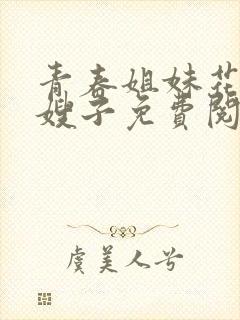 青春姐妹花
嫂子免費閱
虞美人兮